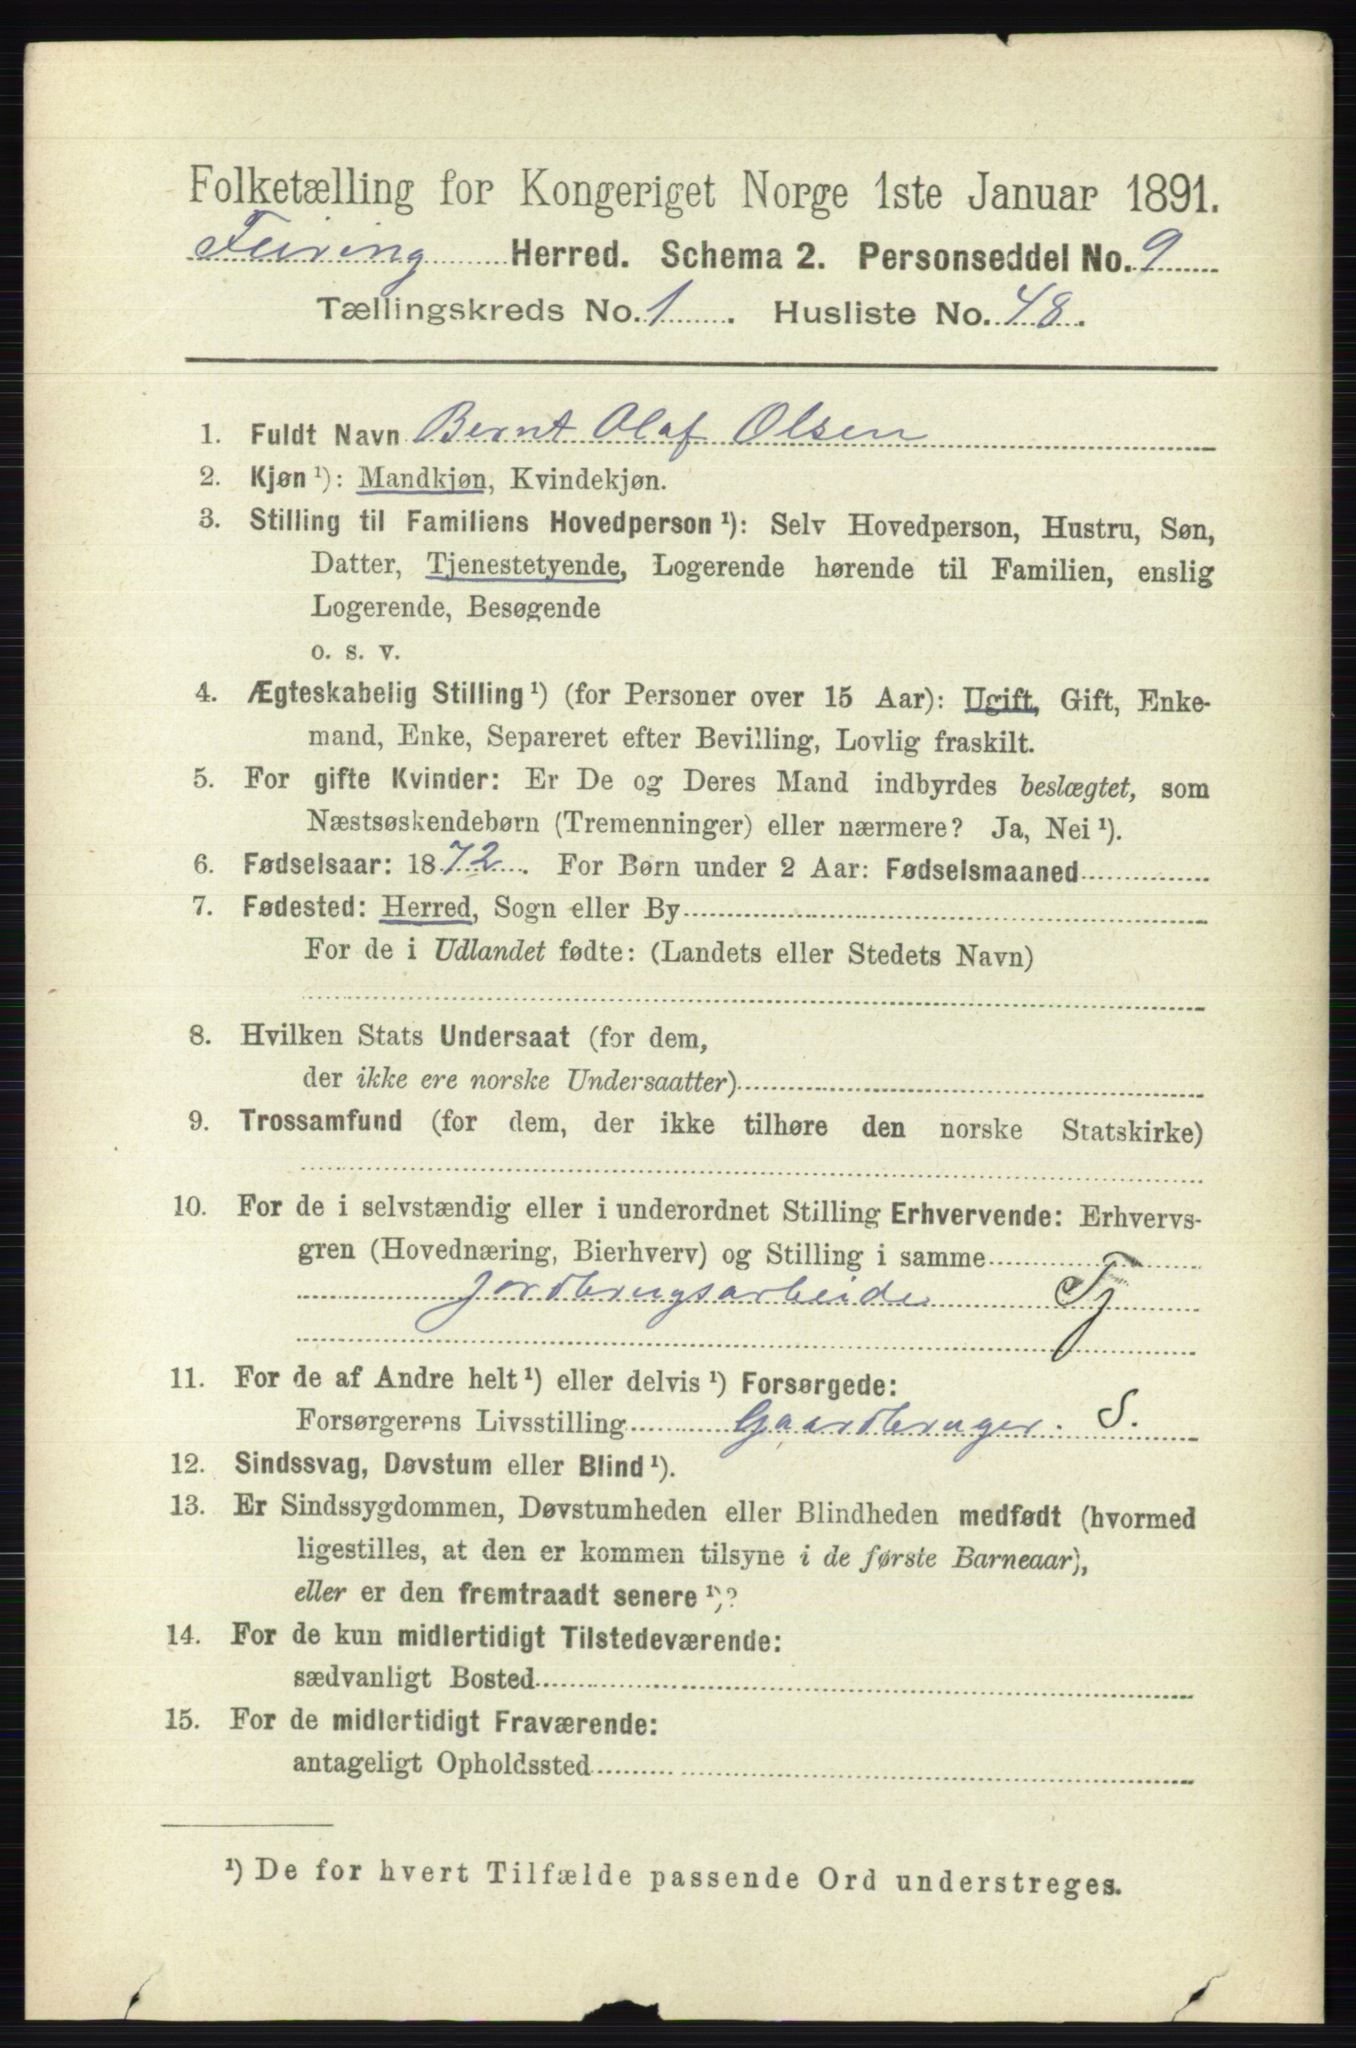 Folketælling for Kongeriget Norge 1ste Januar 1891.
Feiring Herred. Schema 2. Personseddel No. 9
Tællingskreds No. 1. Husliste No. 48.
1. Fuldt Navn Bernt Olaf Olsen
2. Kjøn ¹): Mandkjøn, Kvindekjøn.
3. Stilling til Familiens Hovedperson ¹): Selv Hovedperson, Hustru, Søn,
Datter, Tjenestetyende, Logerende hørende til Familien, enslig
Logerende, Besøgende
o. s. v.
4. Ægteskabelig Stilling ¹) (for Personer over 15 Aar): Ugift, Gift, Enke-
mand, Enke, Separeret efter Bevilling, Lovlig fraskilt.
5. For gifte Kvinder: Er De og Deres Mand indbyrdes beslægtet, som
Næstsøskendebørn (Tremenninger) eller nærmere? Ja, Nei ¹).
6. Fødselsaar: 1872. For Børn under 2 Aar: Fødselsmaaned
7. Fødested: Herred, Sogn eller By
For de i Udlandet fødte: (Landets eller Stedets Navn)
8. Hvilken Stats Undersaat (for dem,
der ikke ere norske Undersaatter)
9. Trossamfund (for dem, der ikke tilhøre den norske Statskirke)
10. For de i selvstændig eller i underordnet Stilling Erhvervende: Erhvervs-
gren (Hovednæring, Bierhverv) og Stilling i samme
Jordbrugsarbeide Tj
11. For de af Andre helt ¹) eller delvis ¹) Forsørgede:
Forsørgerens Livsstilling Gaardbruger. S.
12. Sindssvag, Døvstum eller Blind ¹).
13. Er Sindssygdommen, Døvstumheden eller Blindheden medfødt (hvormed
ligestilles, at den er kommen tilsyne i de første Barneaar),
eller er den fremtraadt senere ¹)?
14. For de kun midlertidigt Tilstedeværende:
sædvanligt Bosted
15. For de midlertidigt Fraværende:
antageligt Opholdssted
¹) De for hvert Tilfælde passende Ord understreges.